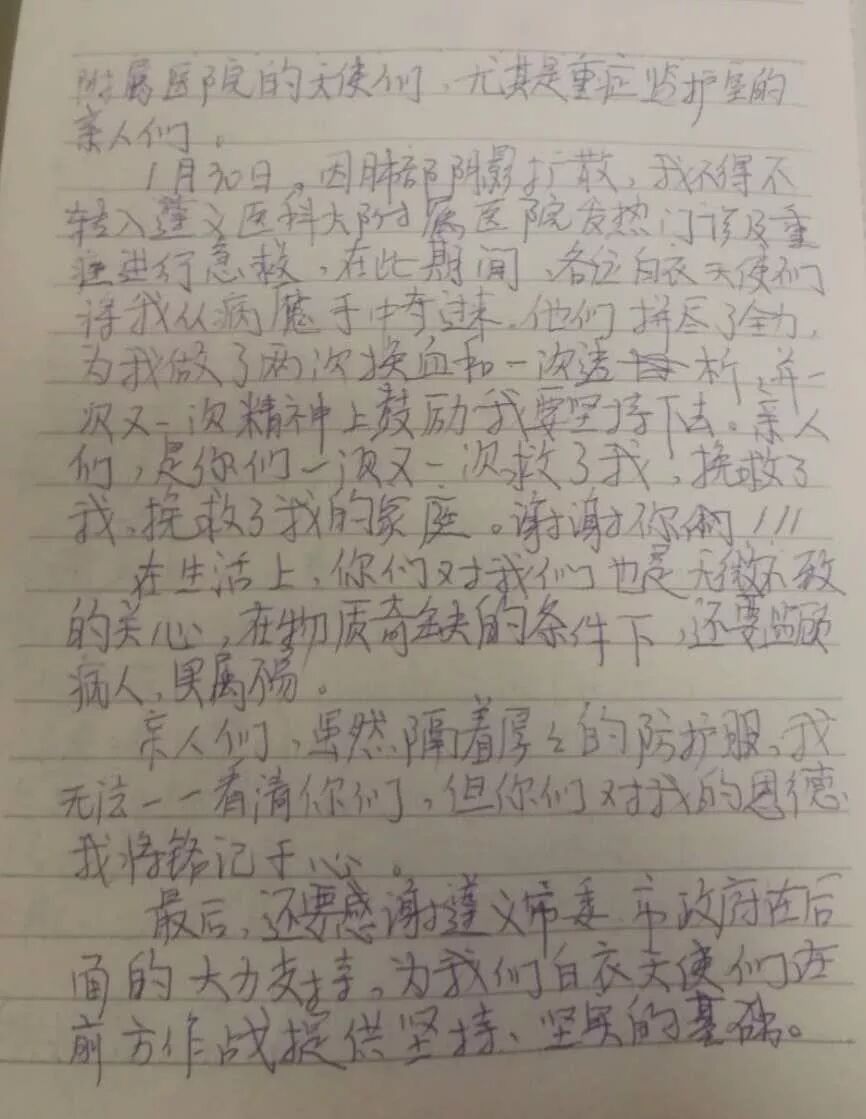 附属医院的天使们、尤其是重症监护室的
亲人们。
1月30日。因肺部阴影扩散，我不得不
转入遵义医科大附属医院发热门诊及重
症进行急救，在此期间、各位白衣天使们
将我从病魔手中夺过来。他们拼尽了全力，
为我做了两次换血和一次透析，并一
次又一次精神上鼓励我要坚持下去。亲人
们，是你们一次又一次救了我，挽救了
我、挽救了我的家庭。谢谢你们!!!
在生活上，你们对我们也是无微不致
的关心，在物质奇缺的条件下，还要照顾
病人，实属不易。
亲人们、虽然隔着厚々的防护服、我
无法一一看清你们，但你们对我的恩德
我将铭记于心。
最后，还要感谢遵义市委、市政府在后
面的大力支持。为我们白衣天使们在
前方作战提供坚持、坚实的基础。